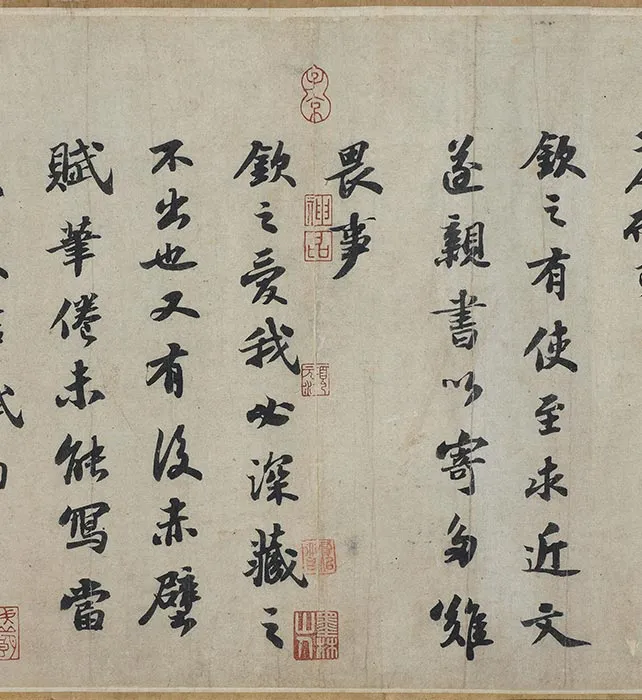 欽之有使至求近文
遂親書以寄多難
畏事
欽之愛我必深藏之
不出也又有後赤壁
賦筆倦未能寫當
子京
神品